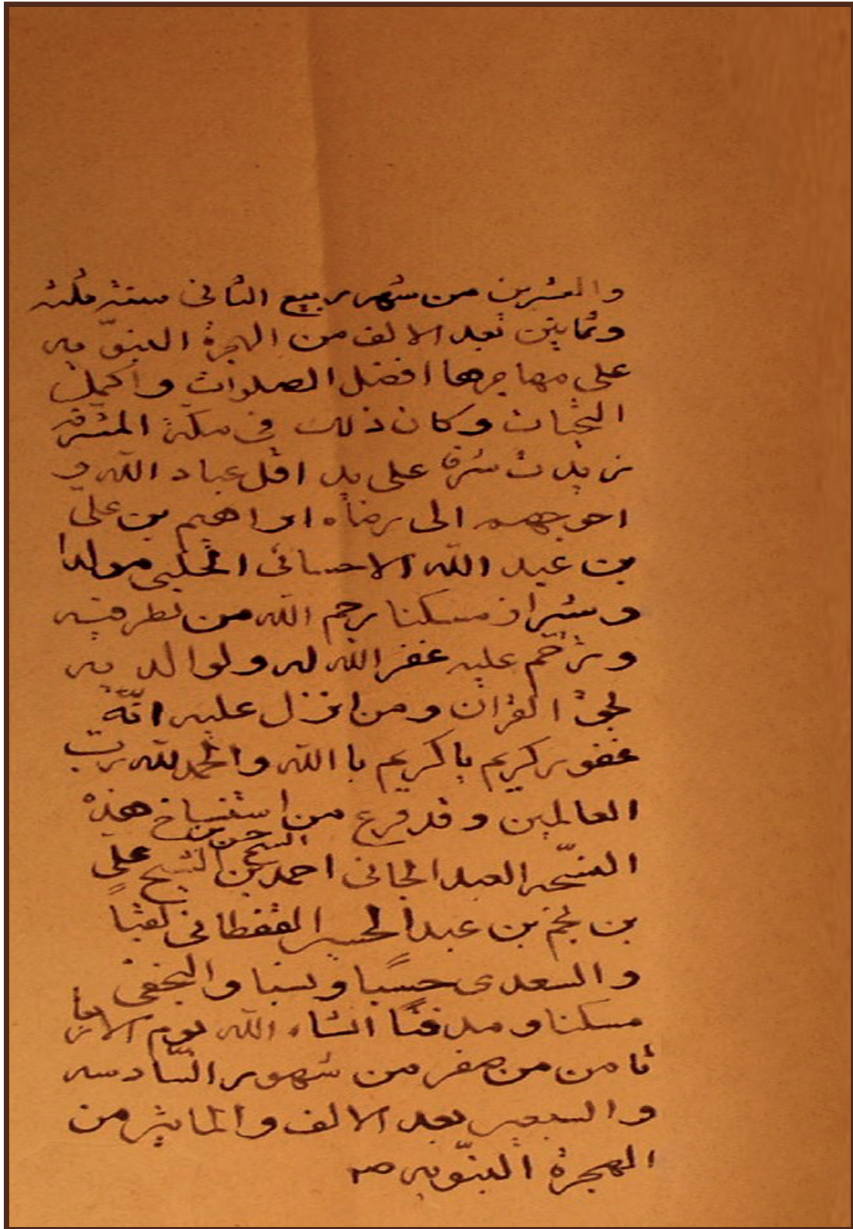 والعشرين من شهر ربيع الثاني سنة ثلث
وثمانين بعد الالف من الهجرة النبوّيه
على مهاجرها افضل الصلوات واكمل
التحيات وكان ذلك في مكّة المشرفه
زيدت شرفا على يد اقل عباد الله و
احوجهم الى رضاه ابراهيم بن علي
بن عبد الله الاحسائي مولدا
وشيراز مسكنا رحم الله من نظر فيه
وترحّم عليه غفر الله له ولوالديه
بحق القران ومن انزل عليه انّه
غفور كريم يا كريم يا الله والحمد لله رب
العالمين وقد فرغ من استنساخ هذه
النسّخه العبد الجاني احمد بن الشيخ حسن بن الشيخ علي
بن نجم بن عبد الحسين القفطاني لقبا
والسعدي حسبا ونسبا والنجفي
مسكنا ومدفنًا انشاء الله يوم
ثامن من صفر من شهور السّادسه
والسبعين بعد الالف والماتين من
الهجرة النبوّيه